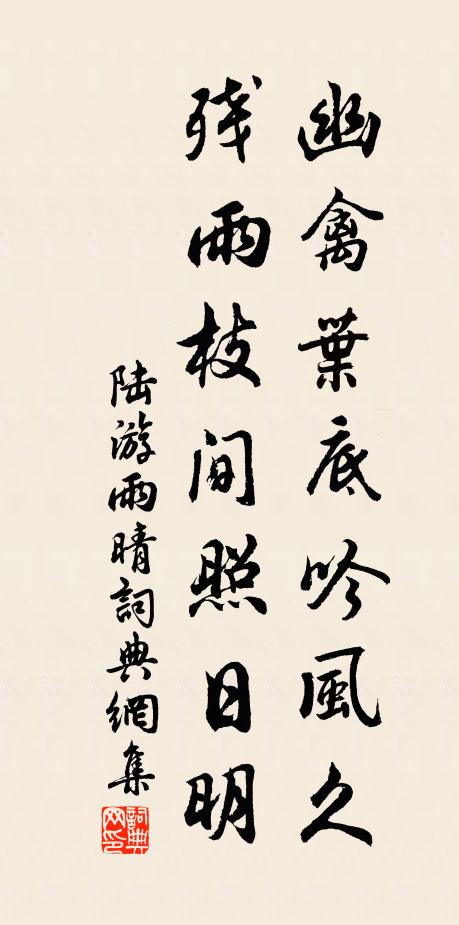 幽禽葉底吟風久
残雨枝间照日明
陆游雨晴詞典網集
詞典网印